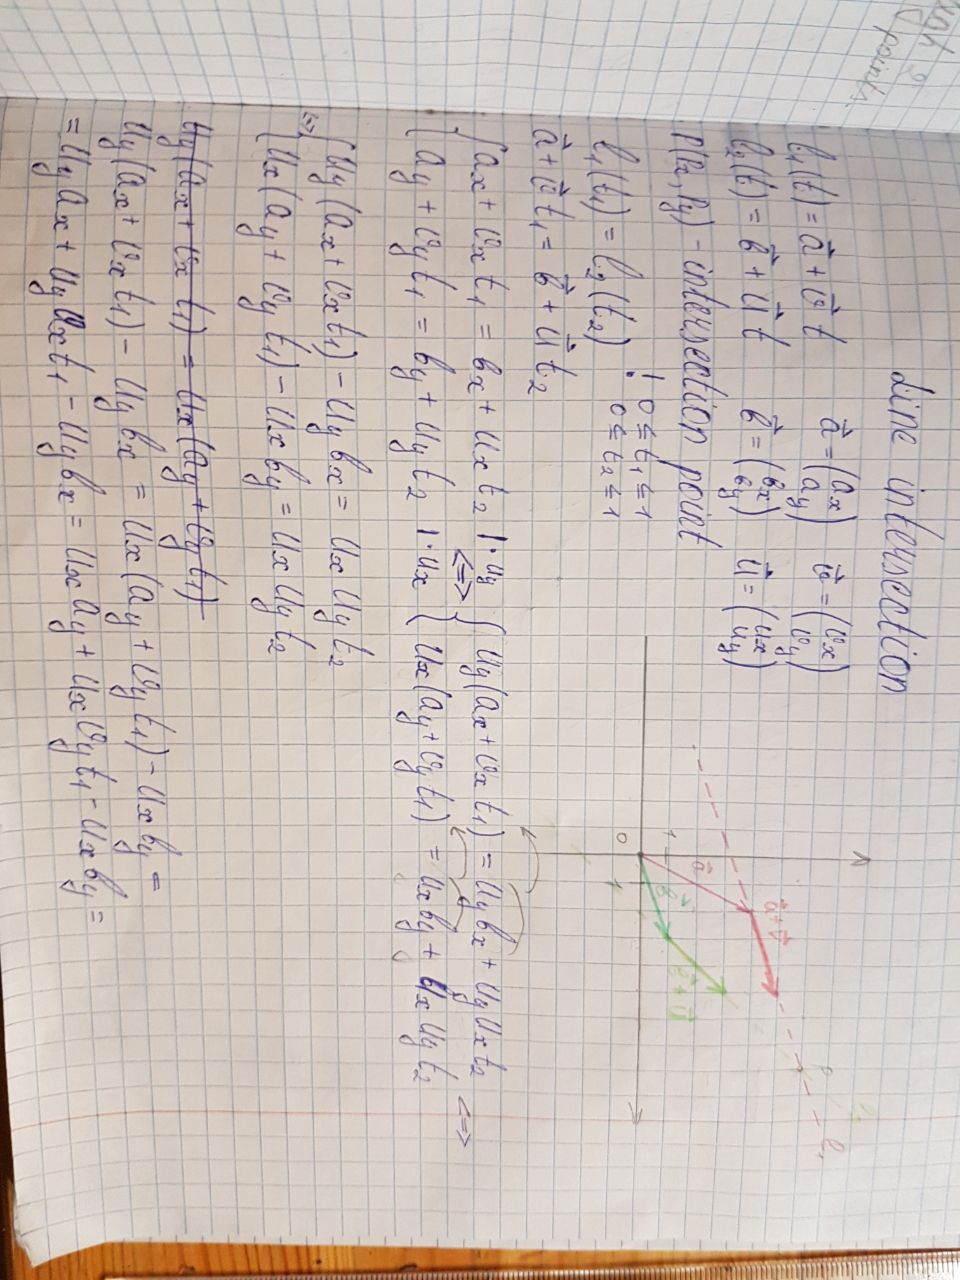 Line intersection
l₁(t) = a⃗ + v⃗ t   a⃗ = (ax ay)   v⃗ = (vx vy)
l₂(t) = b⃗ + u⃗ t   b⃗ = (bx by)   u⃗ = (ux uy)
P(Px, Py) - intersection point
l₁(t₁) = l₂(t₂)   ! 0 ≤ t₁ ≤ 1
0 ≤ t₂ ≤ 1
a⃗ + v⃗ t₁ = b⃗ + u⃗ t₂
{ ax + vx t₁ = bx + ux t₂ | · uy <=> { uy(ax + vx t₁) = uy bx + uy ux t₂ <=>
{ ay + vy t₁ = by + uy t₂ | · ux { ux(ay + vy t₁) = ux by + ux uy t₂
<=> { uy(ax + vx t₁) - uy bx = ux uy t₂
{ ux(ay + vy t₁) - ux by = ux uy t₂
uy(ax + vx t₁) = ux(ay + vy t₁)
uy(ax + vx t₁) - uy bx = ux(ay + vy t₁) - ux by =
= uy ax + uy vx t₁ - uy bx = ux ay + ux vy t₁ - ux by =
0
1
1
a⃗
a⃗ + v⃗
b⃗
b⃗ + u⃗
P
l₁
l₂
points